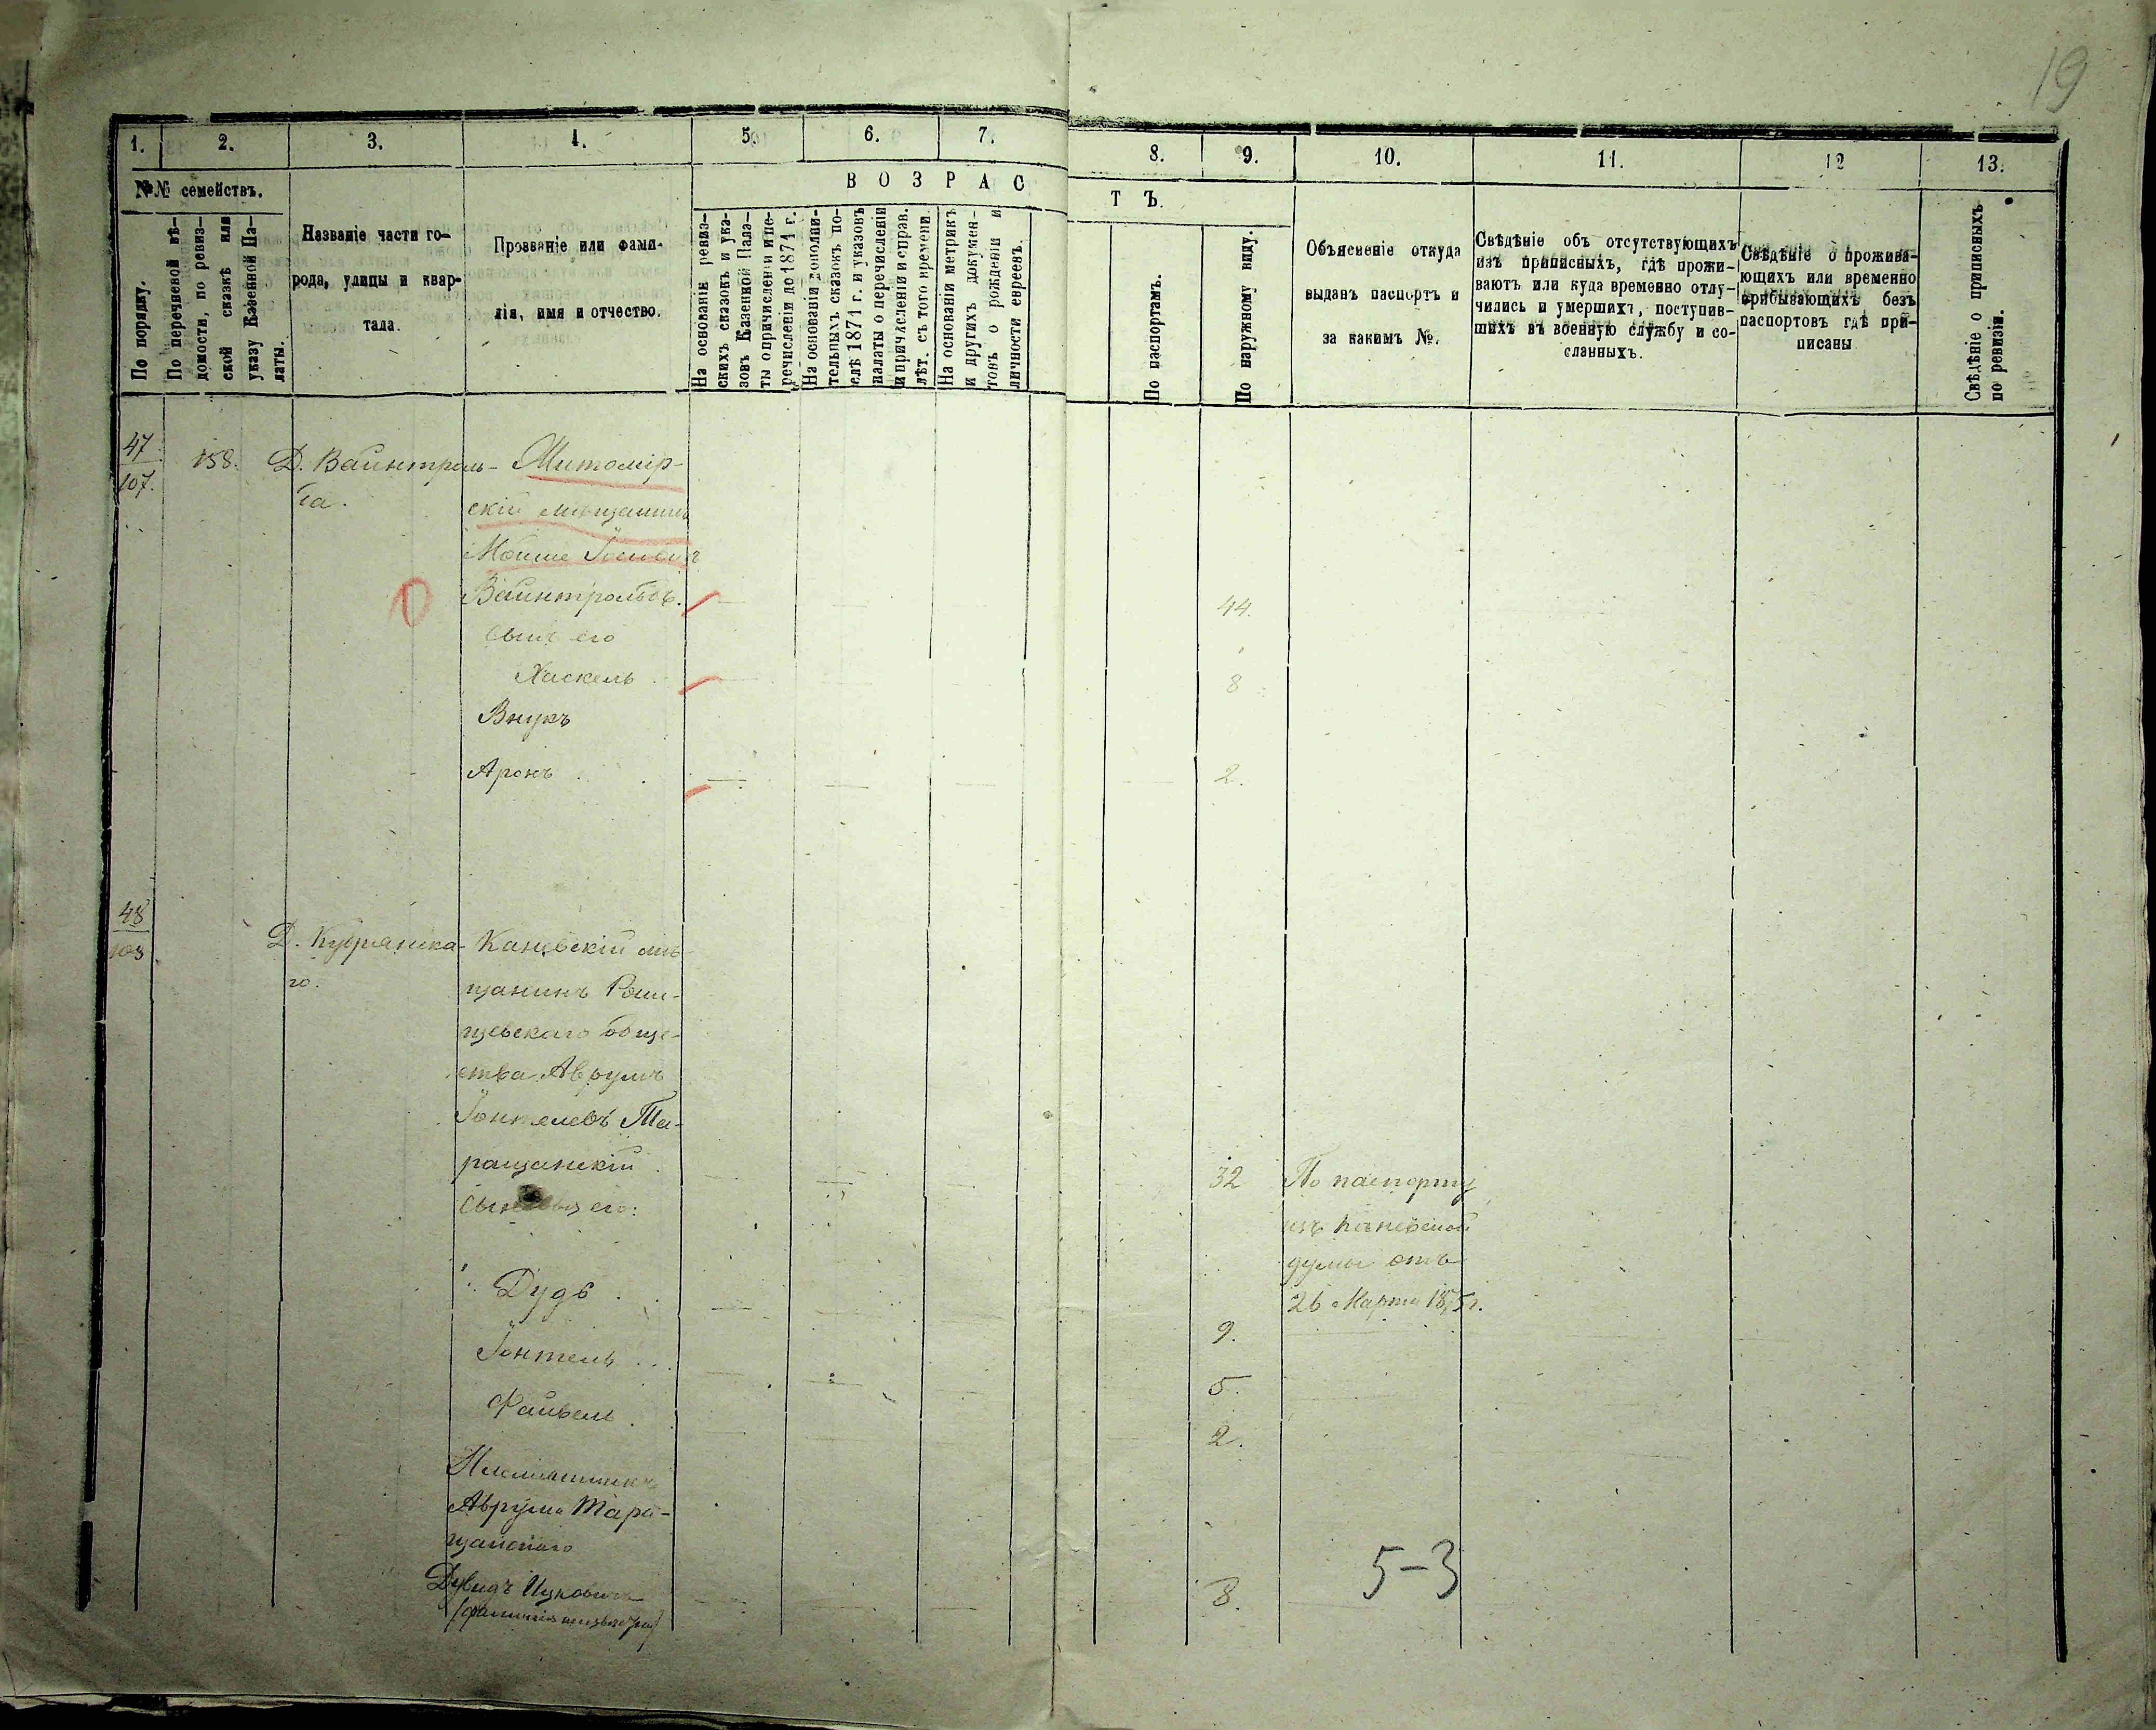 19
1.
2.
3.
4.
5.
6.
7.
8.
9.
10.
11.
12
13.
№№ семействъ.
В О З Р А С
Т Ъ.
По порядку.
По перечневой вѣ-
домости, по ревиз-
ской сказкѣ или
указу Казенной Па-
латы.
Названіе части го-
рода, улицы и квар-
тала.
Прозваніе или фами-
лія, имя и отчество.
На основаніе ревиз-
скихъ сказокъ и ука-
зовъ Казенной Пала-
ты о причисленіи и пе-
речисленіи до 1871 г.
На основаніи дополни-
тельныхъ сказокъ по-
слѣ 1871 г. и указовъ
палаты о перечисленіи
и причисленіи и справ.
лѣт. съ того времени.
На основаніи метрикъ
и другихъ докумен-
товъ о рожденіи и
личности евреевъ.
По паспортамъ.
По наружному виду.
Объясненіе откуда
выданъ паспортъ и
за какимъ №.
Свѣдѣніе объ отсутствующихъ
изъ приписныхъ, гдѣ прожи-
ваютъ или куда временно отлу-
чились и умершихъ, поступив-
шихъ въ военную службу и со-
сланныхъ.
Свѣдѣніе о прожива-
ющихъ или временно
прибывающихъ безъ
паспортовъ гдѣ при-
писаны
Свѣдѣніе о приписныхъ
по ревизіи.
47
107.
158.
Д. Вайнтроль-
ба.
скій мѣщанинъ
Мойше
Вайнтрольбъ.
44.
Сынъ его
Хаскель
8
Внукъ
Аронъ
2.
48
108
Д. Куфранска-
го.
Каневскій мѣ-
щанинъ
щевскаго обще-
ства Аврумъ
Іонтелевъ Та-
ращанскій
32
По паспорту
изъ Каневской
думы отъ
26 Марта 1875 г.
Сыновья его:
Дудь
9.
Іонтель
5.
Файвель
2.
Племянникъ
Аврума Тара-
щанскаго
Дувидъ Ицковичъ
(фамилія неизвѣстна)
8.
5-3